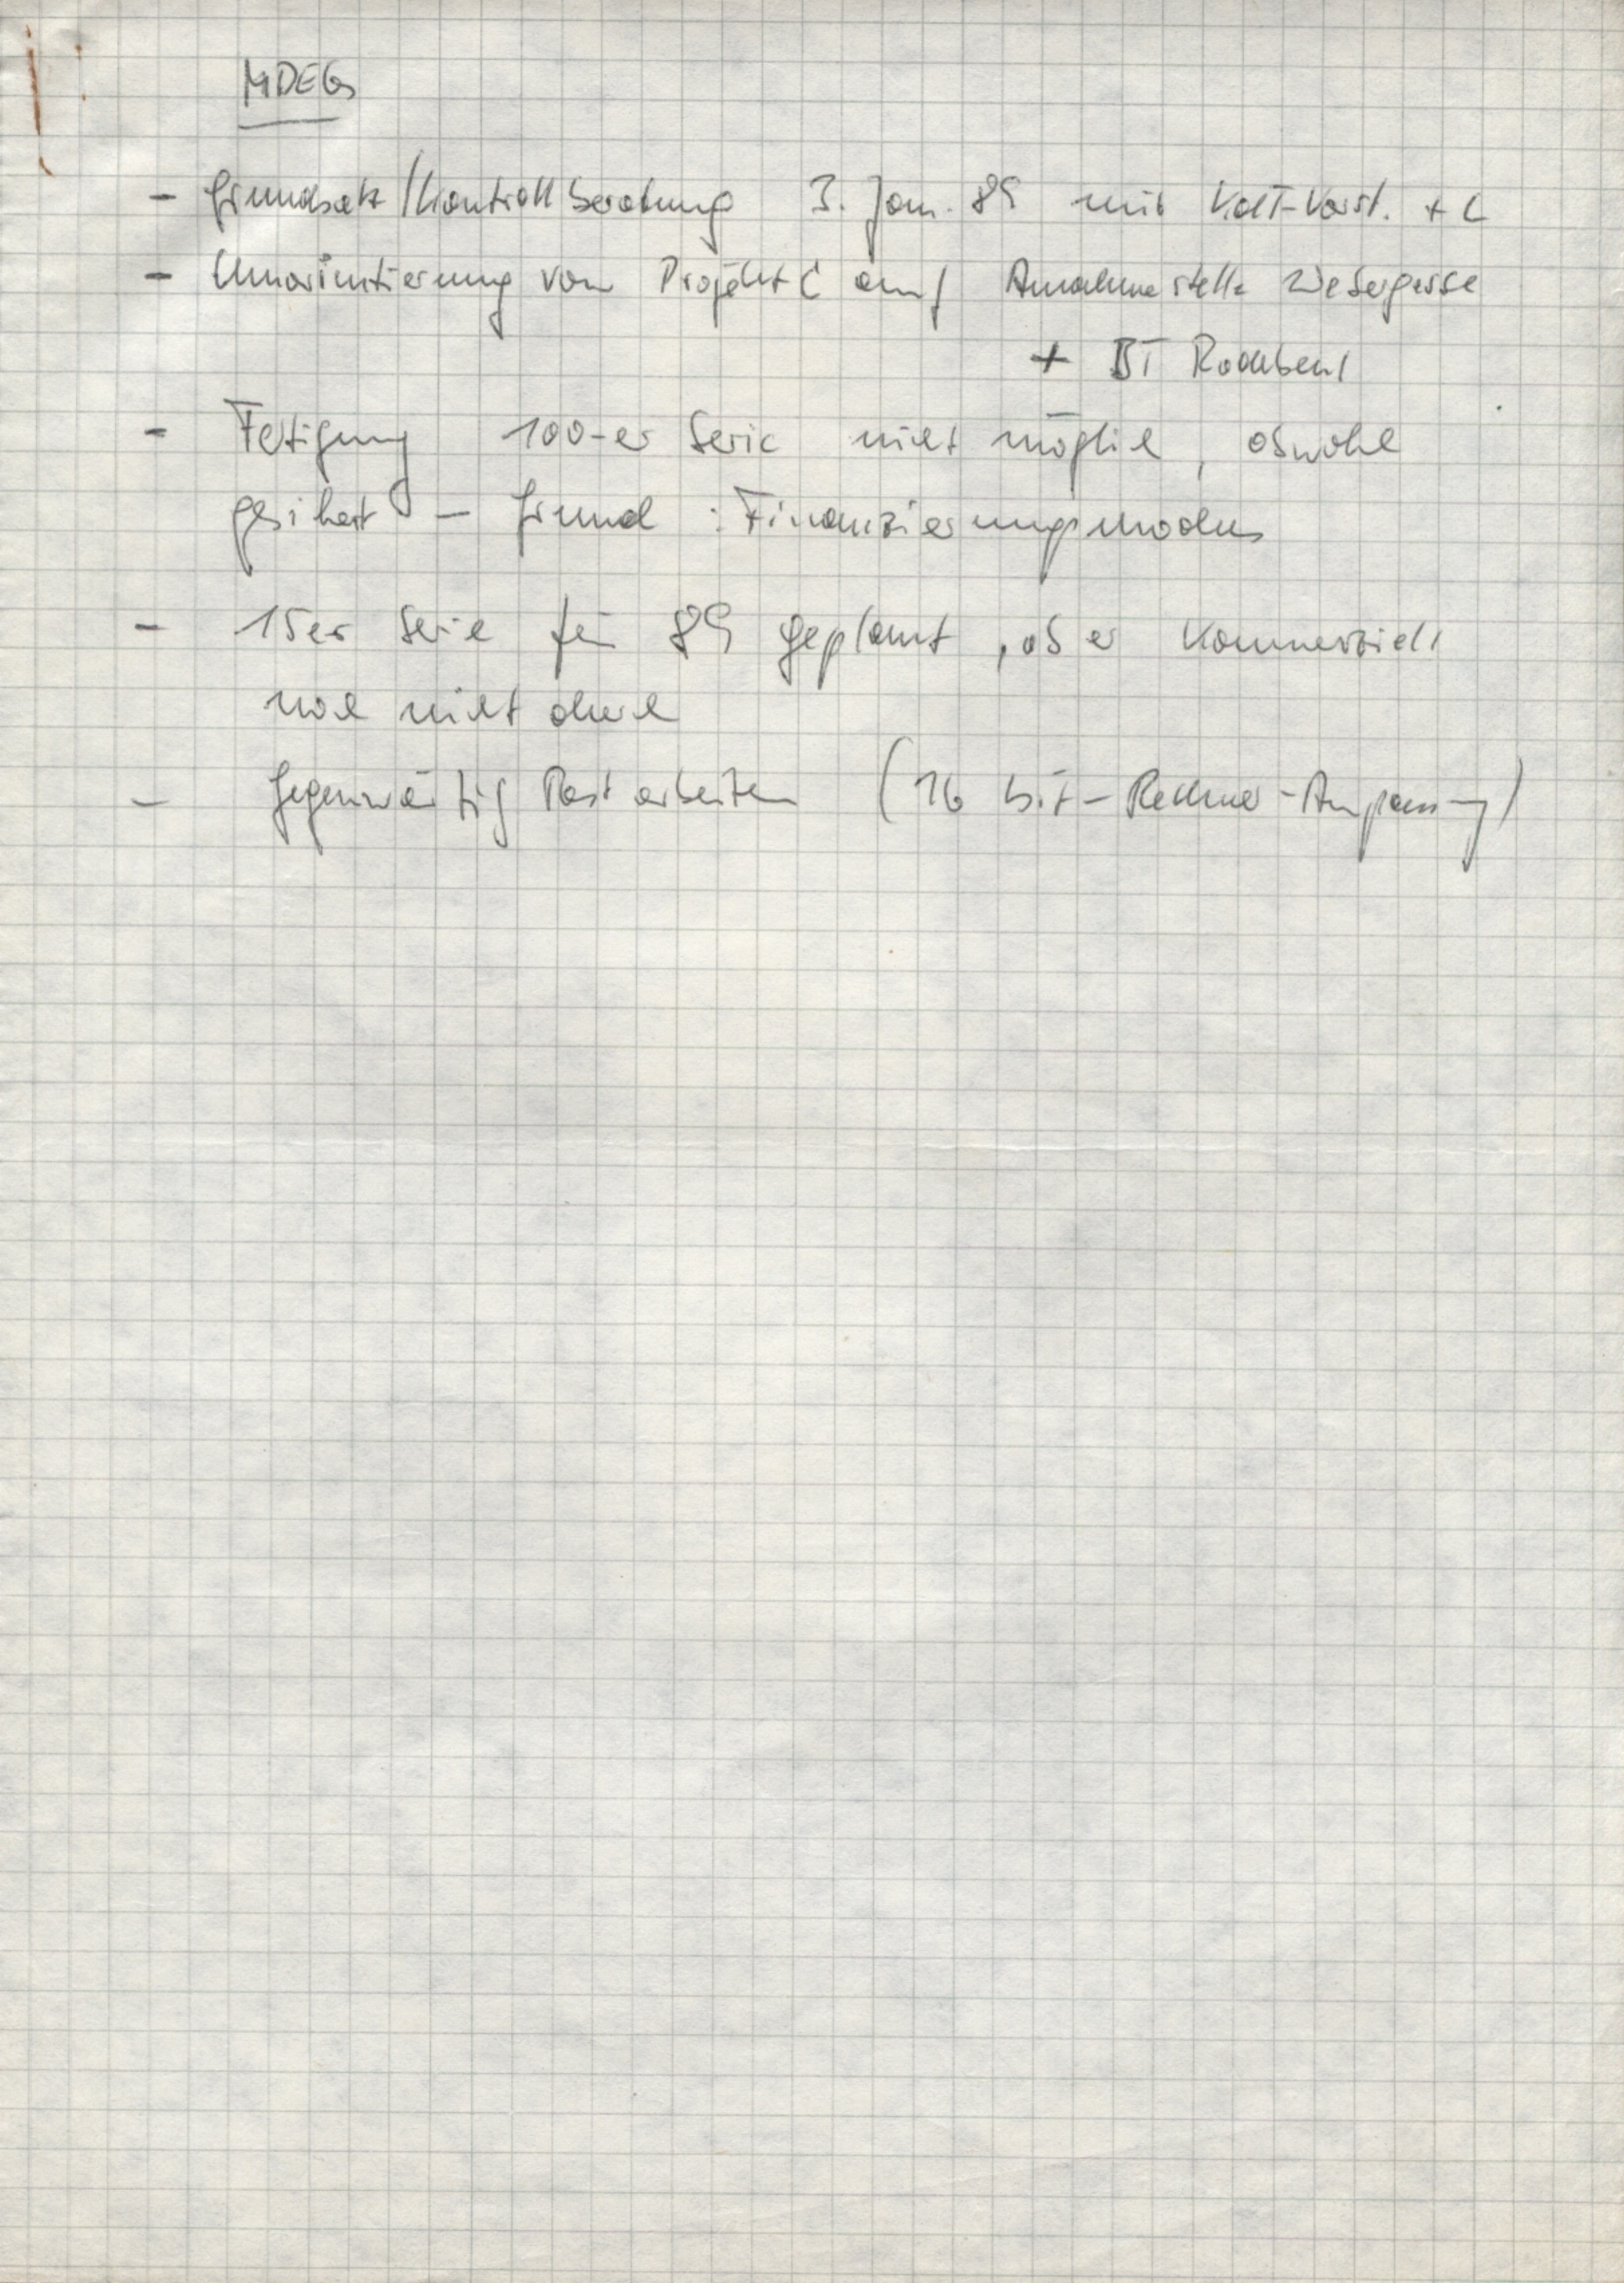 MDEG
- Grundsatz/Kontrollberatung 3. Jan. 89 mit KdT-Vorst. + L
- Umorientierung von Projekt C auf Annahmestelle Webergasse
+ BT Rockbeul
- Fertigung 100-er Serie nicht möglich, obwohl
gesichert - Grund: Finanzierungsmodus
- 15er Serie für 89 geplant, aber kommerziell
noch nicht durch
- Gegenwärtig Restarbeiten (16 bit-Rechner-Anpassung)